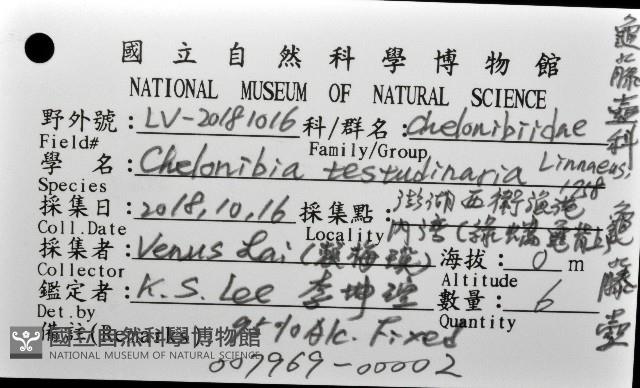 國立自然科學博物館
NATIONAL MUSEUM OF NATURAL SCIENCE
野外號：LV-20181016 科/群名：Chelonibiidae
Field# Family/Group
學 名：Chelonibia testudinaria Linnaeus, 1758
Species
採集日：2018,10,16 採集點：澎湖西衛漁港
內湾(綠蠵龜背上)
Coll.Date Locality
採集者：Venus Lai (賴海瓊) 海拔：0 m
Collector Altitude
鑑定者：K.S. Lee 李坤瑄 數量：6
Det.by Quantity
備註(Remarks) 95% Alc. Fixed
007969-00002
龜藤壺科
龜藤壺
國立自然科學博物館
NATIONAL MUSEUM OF NATURAL SCIENCE